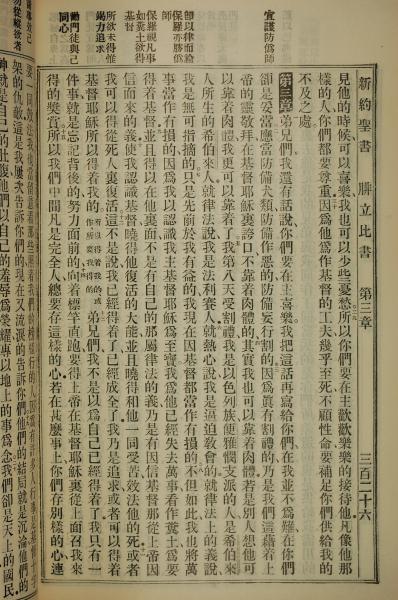 新約聖書 腓立比書 第三章 三百二十六
見他的時候可以喜樂我也可以少些憂愁所以你們要在主歡歡樂樂的接待他凡像他那
樣的人你們都要尊重因爲他爲作基督的工夫幾乎至死不顧性命要補足你們供給我的
不及之處
宣謹防僞師
第三章弟兄們我還有話說你們要在主喜樂我把這話再寫給你們在我並不爲難在你們
卻是妥當應當防備犬類防備作惡的防備妄行割的因爲眞有割禮的乃是我們這藉着上
帝的靈敬拜在基督耶穌裏誇口不靠着肉體的其實我也可以靠着肉體若是別人想他可
以靠着肉體我更可以靠着了我第八天受割禮我是以色列族便雅憫支派的人是希伯來
卽以律而論
保羅亦勝僞
師
人所生的希伯來人就律法說我是法利賽人就熱心說我是逼迫敎會的就律法上的義說
我是無可指摘的只是先前於我有益的我現在因基督都當作有損的不但如此我也將萬
保羅視凡事
如糞土欲得
基督
事當作有損的因爲我以認識我主基督耶穌爲至寶我爲他已經丟失萬事看作糞土爲要
得着基督並且得以在他裏面不是有自己的那屬律法的義乃是有因信基督那從上帝因
信而來的義使我認識基督曉得他復活的大能並且曉得和他一同受苦效法他的死或者
所欲未得惟
竭力追求
可以得從死人裏復活這不是說我已經得着了已經成全了我乃是追求或者可以得着
基督耶穌所以得着我的弟兄們我不是以爲自己已經得着了我只有一
件事就是忘記背後的努力面前的向着標竿直跑要得上帝在基督耶穌裏從上面召我來
勸門徒與己
同心
得的獎賞所以我們中間凡是完全人總要存這樣的心若在甚麽事上你們存別樣的心